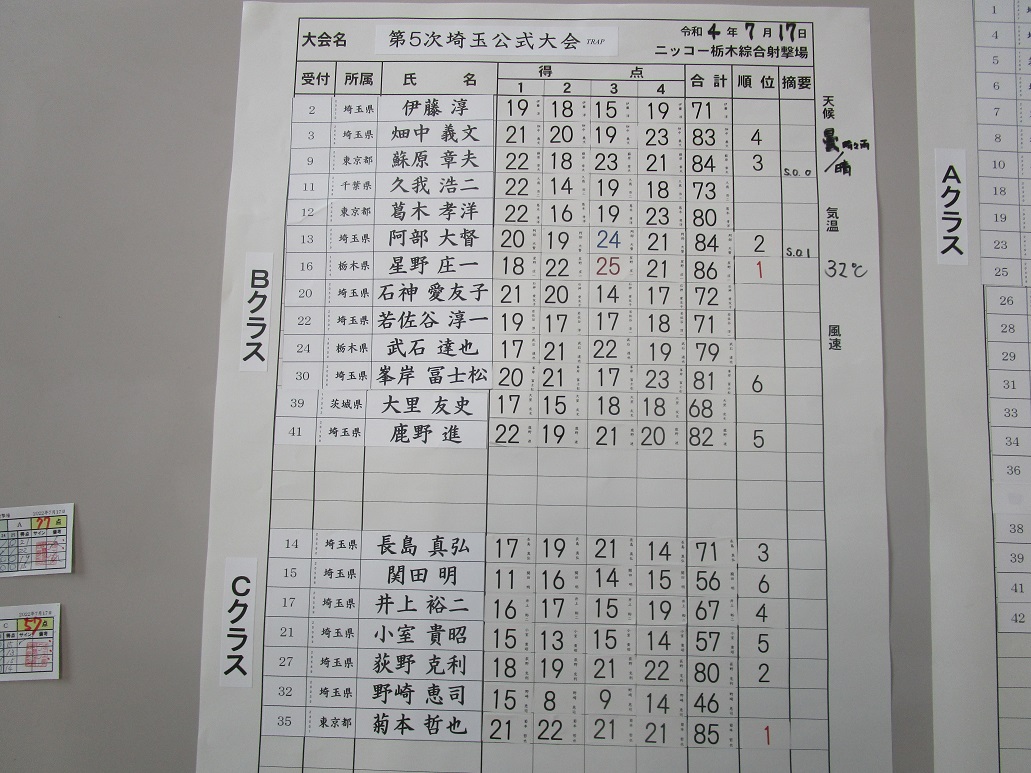 大会名 第5次埼玉公式大会 TRAP
令和 4 年 7 月 17日
ニッコー栃木綜合射撃場
受付 所属 氏名 得点 合計 順位 摘要
1 2 3 4
2 埼玉県 伊藤 淳 19 18 15 19 71
3 埼玉県 畑中 義文 21 20 19 23 83 4
9 東京都 蘇原 章夫 22 18 23 21 84 3 S.O. 0
11 千葉県 久我 浩二 22 14 19 18 73
12 東京都 葛木 孝洋 22 16 19 23 80
13 埼玉県 阿部 大督 20 19 24 21 84 2 S.O 1
16 栃木県 星野 庄一 18 22 25 21 86 1
20 埼玉県 石神 愛友子 21 20 14 17 72
22 埼玉県 若佐谷 淳一 19 17 17 18 71
24 栃木県 武石 達也 17 21 22 19 79
30 埼玉県 峯岸 冨士松 20 21 17 23 81 6
39 茨城県 大里 友史 17 15 18 18 68
41 埼玉県 鹿野 進 22 19 21 20 82 5
Bクラス
14 埼玉県 長島 真弘 17 19 21 14 71 3
15 埼玉県 関田 明 11 16 14 15 56 6
17 埼玉県 井上 裕二 16 17 15 19 67 4
21 埼玉県 小室 貴昭 15 13 15 14 57 5
27 埼玉県 荻野 克利 18 19 21 22 80 2
32 埼玉県 野崎 恵司 15 8 9 14 46
35 東京都 菊本 哲也 21 22 21 21 85 1
Cクラス
天候
曇時々雨
/晴
気温
32℃
風速
Aクラス
1
4
5
6
7
8
10
18
19
23
25
26
28
29
31
33
34
36
38
39
41
42
2022年7月17日
A 77 点
得点 サイン 備考
2022年7月17日
C 57 点
得点 サイン 備考